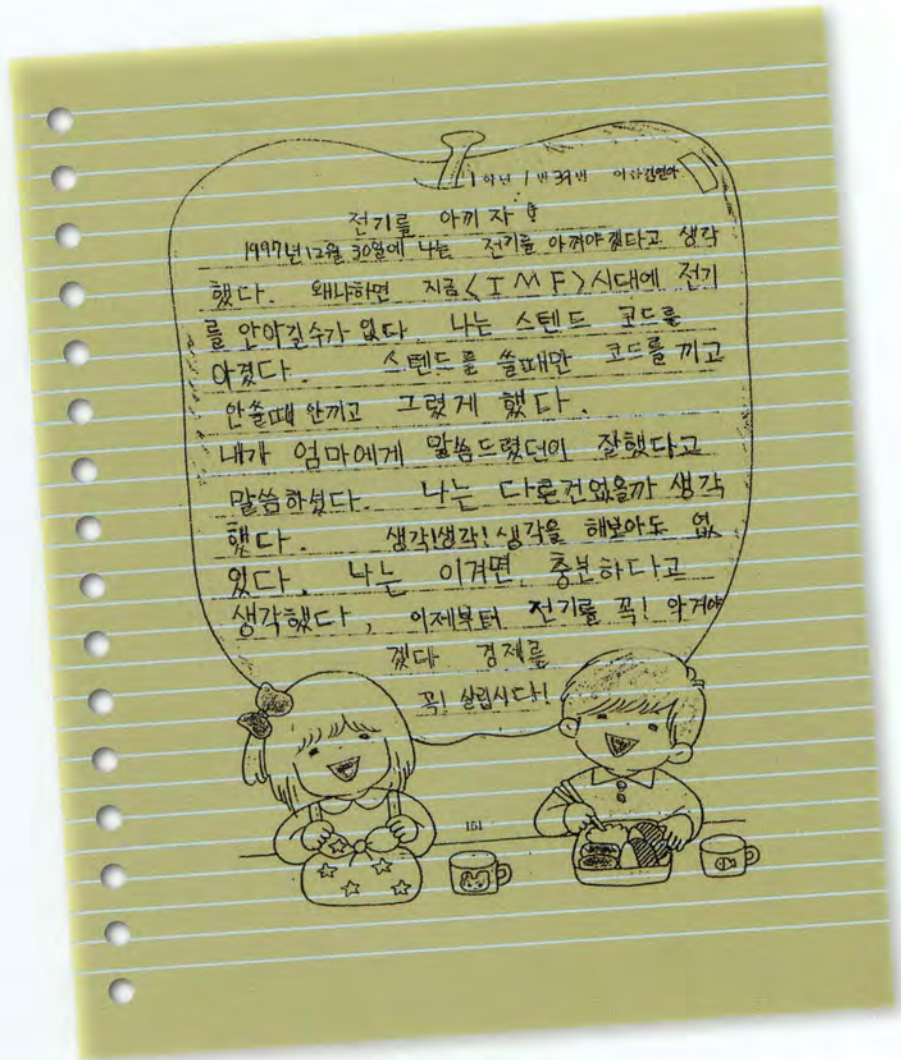 1학년 1반 39번 이름김연아
전기를 아끼자!
1997년12월 30일에 나는 전기를 아껴야겠다고 생각
했다. 왜냐하면 지금<IMF>시대에 전기
를 안아낄수가 없다. 나는 스텐드 코드를
아꼈다. 스텐드를 쓸때만 코드를끼고
안쓸때 안끼고 그렇게 했다.
내가 엄마에게 말씀드렸던이 잘했다고
말씀하셨다. 나는 다른건없을까 생각
했다. 생각!생각!생각을 해보아도 없
있다. 나는 이거면 충분하다고
생각했다, 이제부터 전기를 꼭! 아껴야
겠다 경제를
꼭! 살립시다!
151